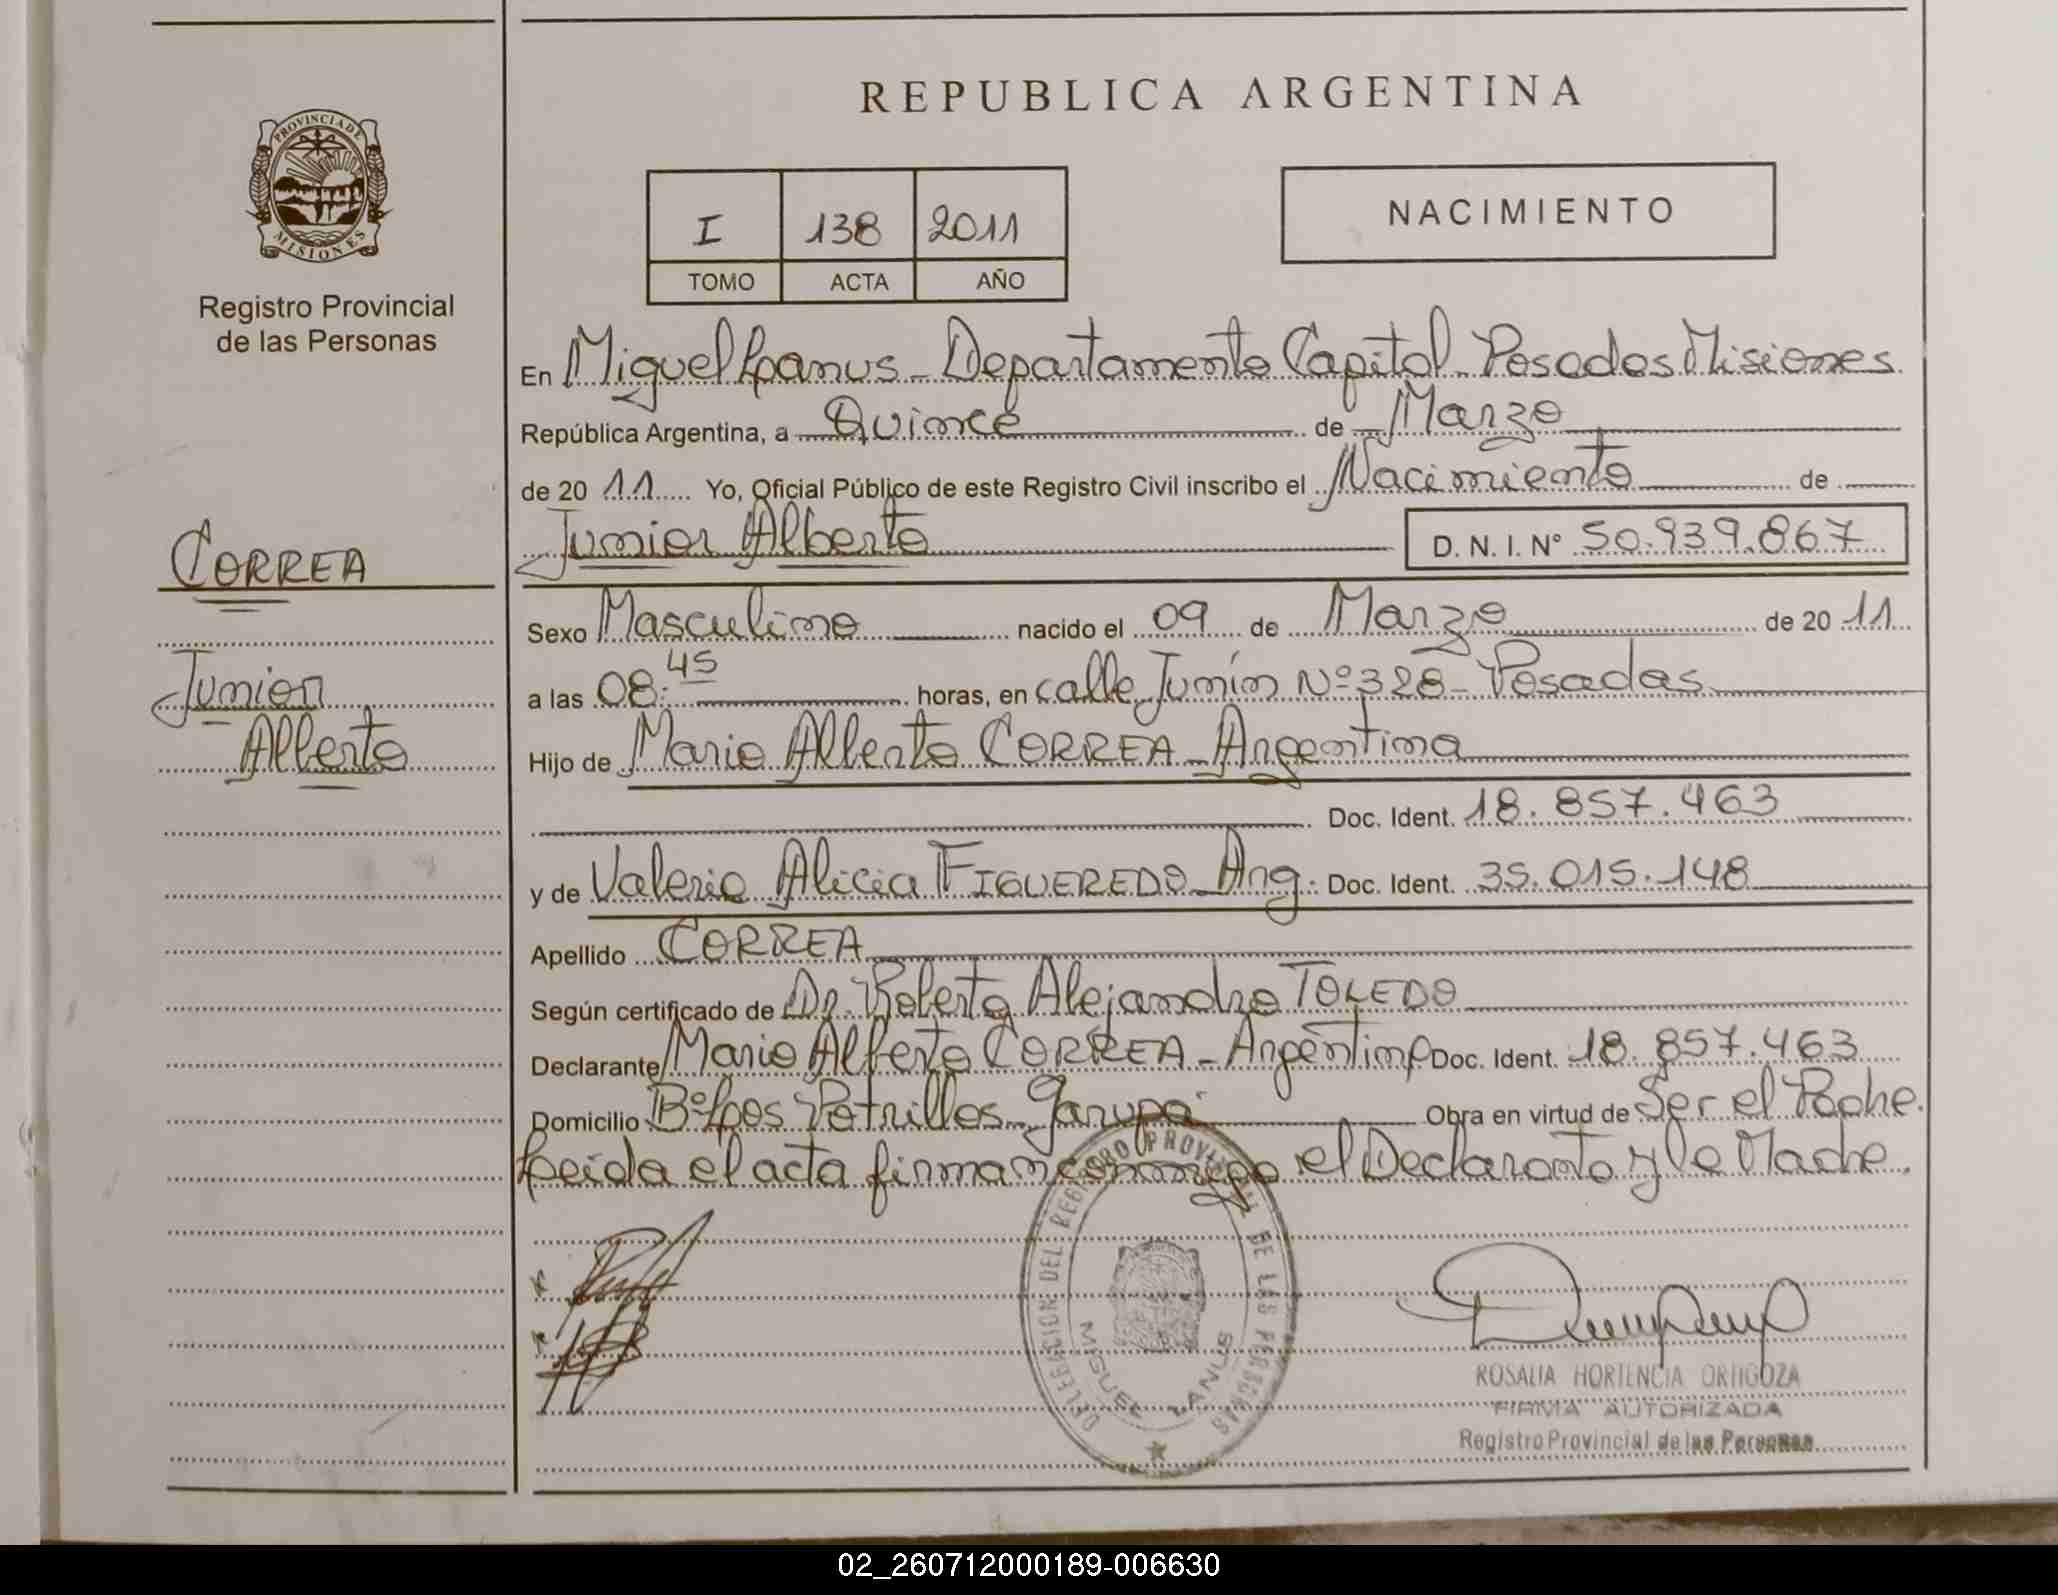 REPUBLICA ARGENTINA
PROVINCIA DE
MISIONES
Registro Provincial
de las Personas
I 138 2011
TOMO ACTA AÑO
NACIMIENTO
En Miguel Lanus - Departamento Capital - Posadas Misiones
República Argentina, a Quince de Marzo
de 20 11 Yo, Oficial Público de este Registro Civil inscribo el Nacimiento de
Junior Alberto D. N. I. Nº 50.939.867
CORREA
Junior
Alberto
Sexo Masculino nacido el 09 de Marzo de 20 11
a las 08:45 horas, en calle Junín Nº 328 - Posadas
Hijo de Mario Alberto CORREA - Argentina
Doc. Ident. 18.857.463
y de Valeria Alicia FIGUEREDO - Arg. Doc. Ident. 35.015.148
Apellido CORREA
Según certificado de Dr. Roberto Alejandro TOLEDO
Declarante Mario Alberto CORREA - Argentina Doc. Ident. 18.857.463
Domicilio Bº Los Potrillos - Garupá Obra en virtud de Ser el Padre.
Leida el acta firman conmigo el Declarante y la Madre.
DELEGACION DEL REGISTRO PROVINCIAL DE LAS PERSONAS
MIGUEL LANUS
ROSALIA HORTENCIA ORTIGOZA
FIRMA AUTORIZADA
Registro Provincial de las Personas
02_260712000189-006630